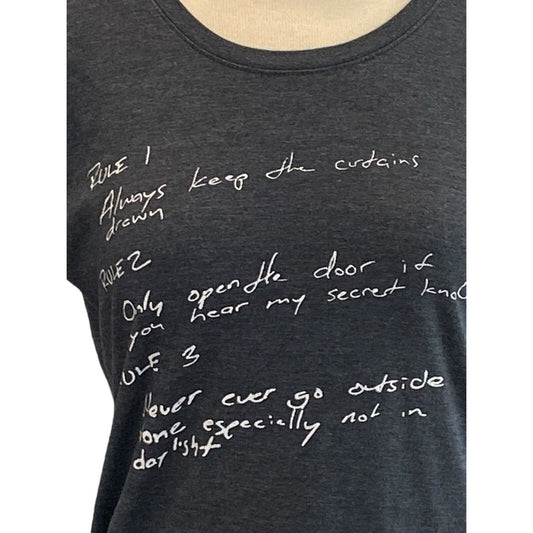 RULE 1
Always keep the curtains
drawn
RULE 2
Only open the door if
you hear my secret knoc
RULE 3
Never ever go outside
lone especially not in
day light